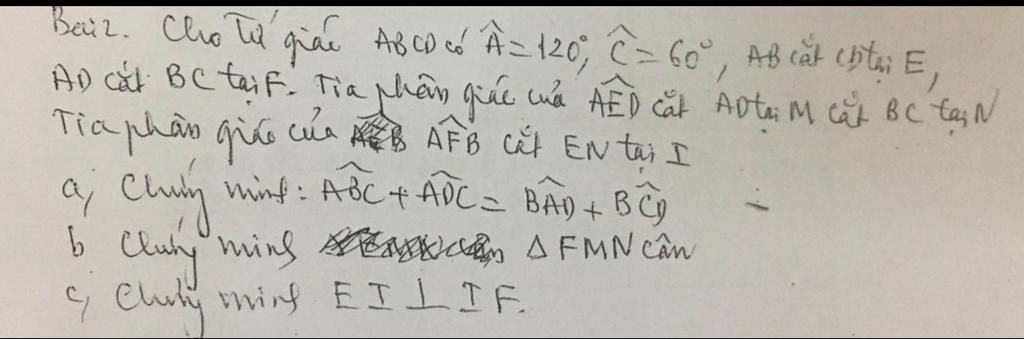 Bài 2. Cho Tứ giác ABCD có Â = 120°, Ĉ = 60°, AB cắt CD tại E,
AD cắt BC tại F. Tia phân giác của AÊD cắt AD tại M cắt BC tại N
Tia phân giác của AF̂B cắt EN tại I
a, Chứng minh: AB̂C + AD̂C = BÂD + BĈD
b Chứng minh Δ FMN cân
c, Chứng minh EI ⊥ IF.